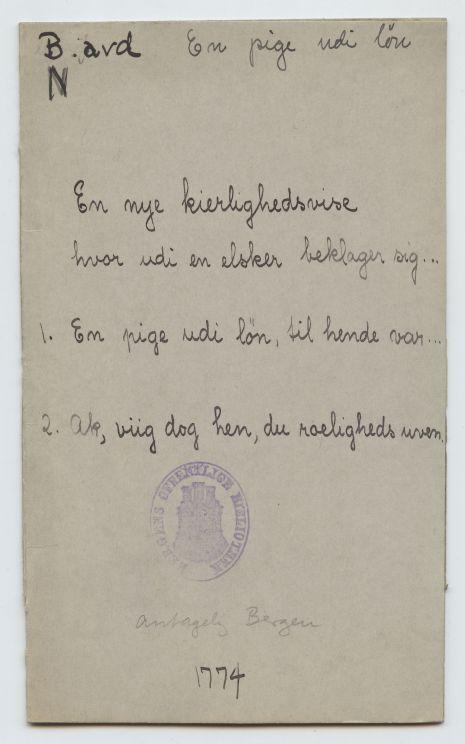 B. avd En pige udi løn
N
En nye kierlighedsvise
hvor udi en elsker beklager sig...
1. En pige udi løn, til hende var...
2. Ak, viig dog hen, du roeligheds uven.
BERGENS OFFENTLIGE BIBLIOTHEK
antagelig Bergen
1774